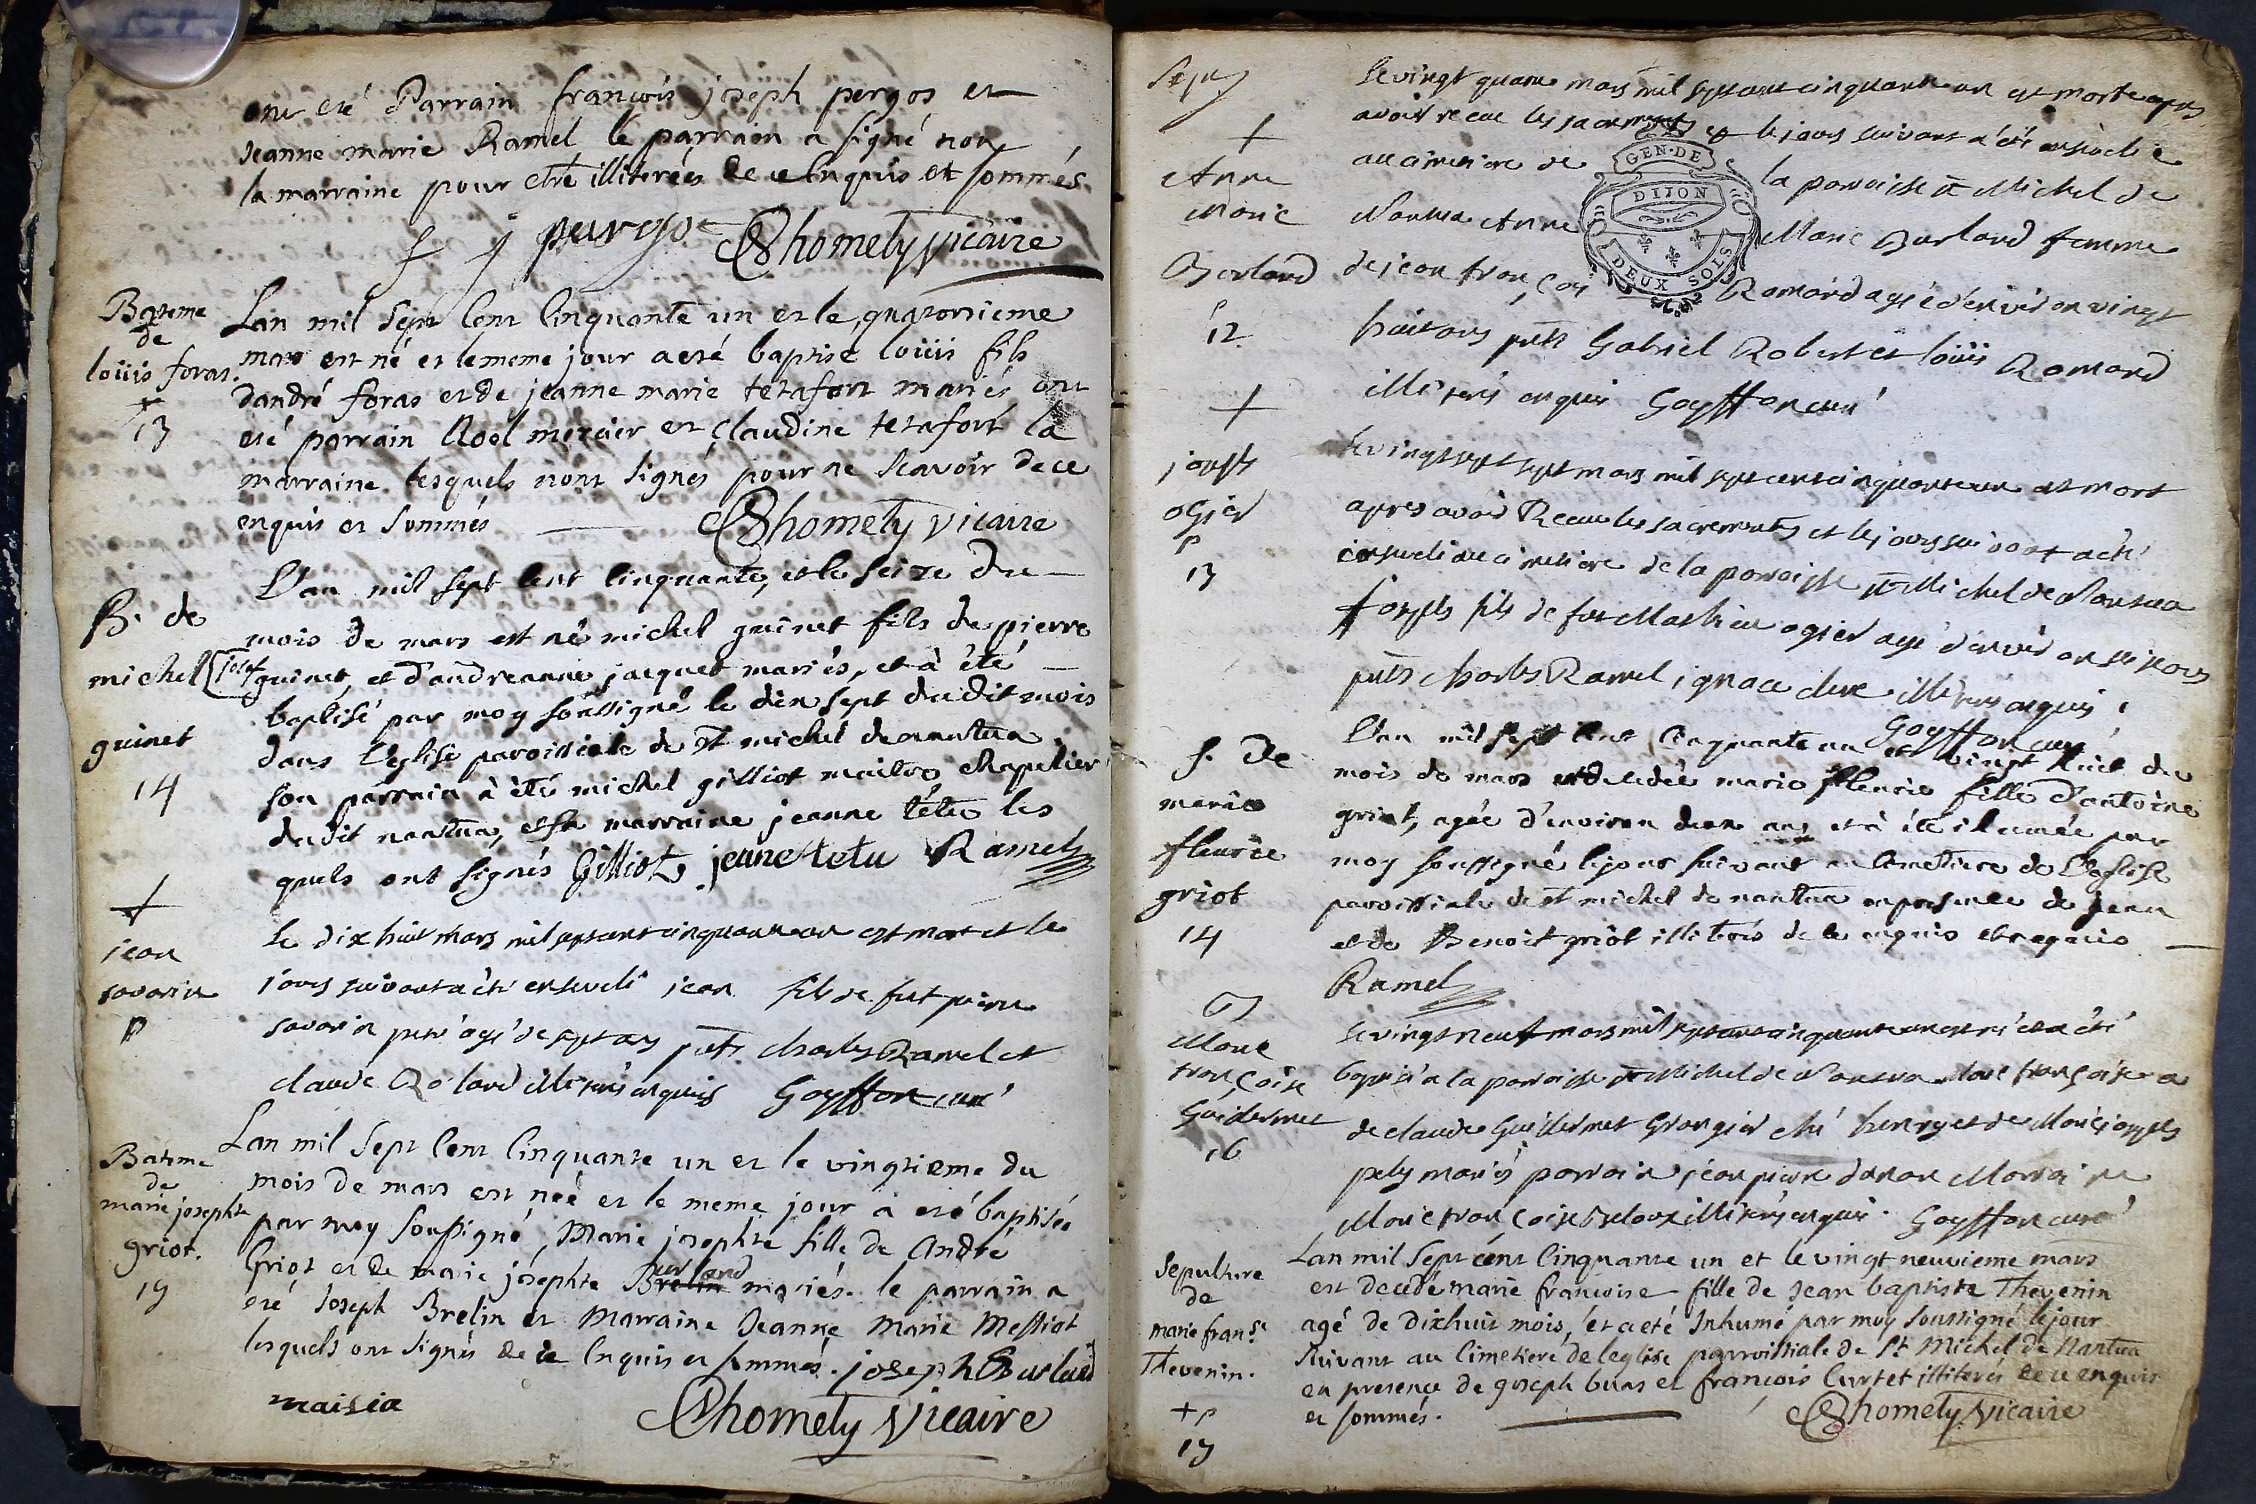 ont eté Parrain françois joseph pergos et
Jeanne marie Ramel le parrain a signé non
la marraine pour etre illiterées de ce enquis et sommés
f j purgos Chomety vicaire
Bateme
de
loüis foras.
+
13
Lan mil Sept Cent Cinquante un et le quatorzieme
mars est né et le meme jour a eté baptisé loüis fils
dandré foras et de jeanne marie tetafort mariés ont
eté parrain Roel mercier et Claudine tetafort la
marraine lesquels n'ont signés pour ne scavoir de ce
enquis et sommés Chomety vicaire
B. de
michel josef
guinet
14
L'an mil sept cent cinquante, et le seize du
mois de mars est né michel guinet fils de pierre
guinet, et d'andreanne jacquet mariés, et à été
baptisé par moy soussigné le dix sept du dit mois
dans l'eglise paroissiale de st michel de nantua
son parrain à été michel gilliot maitre chapelier
du dit nantua, et sa marraine jeanne tétu les
quels ont signés Gilliot jeane tetu Ramel
+
jean
savarin
p
le dix huit mars mil sept cent cinquante un est mort et le
jours suivant a été enseveli jean fils de fut pierre
savarin agé de sept ans pnts charles Ramel et
claude Rolard illiterés enquis Goyffon curé
Bateme
de
marie josephte
Griot.
15
Lan mil Sept Cent Cinquante un et le vingtieme du
mois de mars est néé et le meme jour à eté baptisée
par moy soussigné, Marie josephte fille de André
Griot et de marie josephte Brelin burland mariés. le parrain a
eté Joseph Brelin et Marraine Jeanne Marie Messiot
lesquels ont signés de ce Enquis et sommés. joseph Burland
maisia Chomety Vicaire
Sepu
+
Anne
Marie
Borland
p
12
le vingt quatre mars mil sept cent cinquante un est morte apres
avoir recue les sacrements et le jours suivant a été ensevelie
au cimetiere de la paroisse st Michel de
Nantua Anne Marie Burland femme
de jean françois Romard agée d'environ vingt
huit ans pnts Gabriel Robert et loüis Romard
illiterés enquis Goyffon curé
GEN. DE
DIJON
DEUX SOLS
+
joseph
ogier
p
13
le vingt sept mars mil sept cent cinquante un est mort
apres avoir Recue les sacrements et le jours suivant a été
enseveli au cimetiere de la paroisse st Michel de Nantua
joseph fils de fut Mathieu ogier agé d'environ
pnts charles Ramel, ignace clerc illiterés enquis
Goyffon curé
S. De
marie
fleurie
griot
14
L'an mil sept cent cinquante un et vingt huit du
mois de mars est decedée marie fleurie fille d'antoine
griot, agée d'environ deux ans et à été inhumée par
moy soussigné le jour suivant au cimetiere de l'Eglise
paroissiale de st michel de nantua en presence de jean
et de Benoit griot illiterés de ce enquis et requis
Ramel
Marie
françoise
Guillermet
16
le vingt neuf mars mil sept cent cinquante un est né et a été
baptisé a la paroisse st Michel de Nantua Marie françoise
de claude Guillermet Grangier ché henry et de Marie joseph
pely mariés parrain jean pierre danan Marraine
Marie françoise illiterés enquis. Goyffon curé
Sepulture
de
marie franse
Thevenin.
+ p
15
Lan mil Sept cent Cinquante un et le vingt neuvieme mars
est decedé marie francoise fille de Jean baptiste Thevenin
agé de dixhuit mois, et a eté Inhumé par moy soussigné le jour
suivant au Cimetiere de leglise parroissiale de St Michel de Nantua
en presence de joseph buas et françois Curtet illiterés de ce enquis
et sommés. Chomety Vicaire